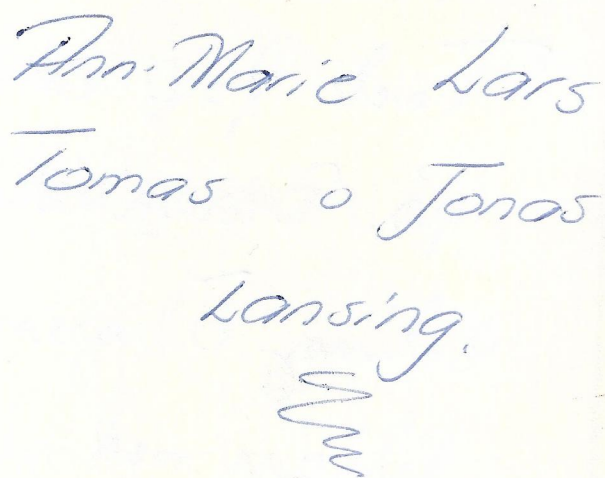 Ann-Marie Lars
Tomas o Jonas
Lansing.